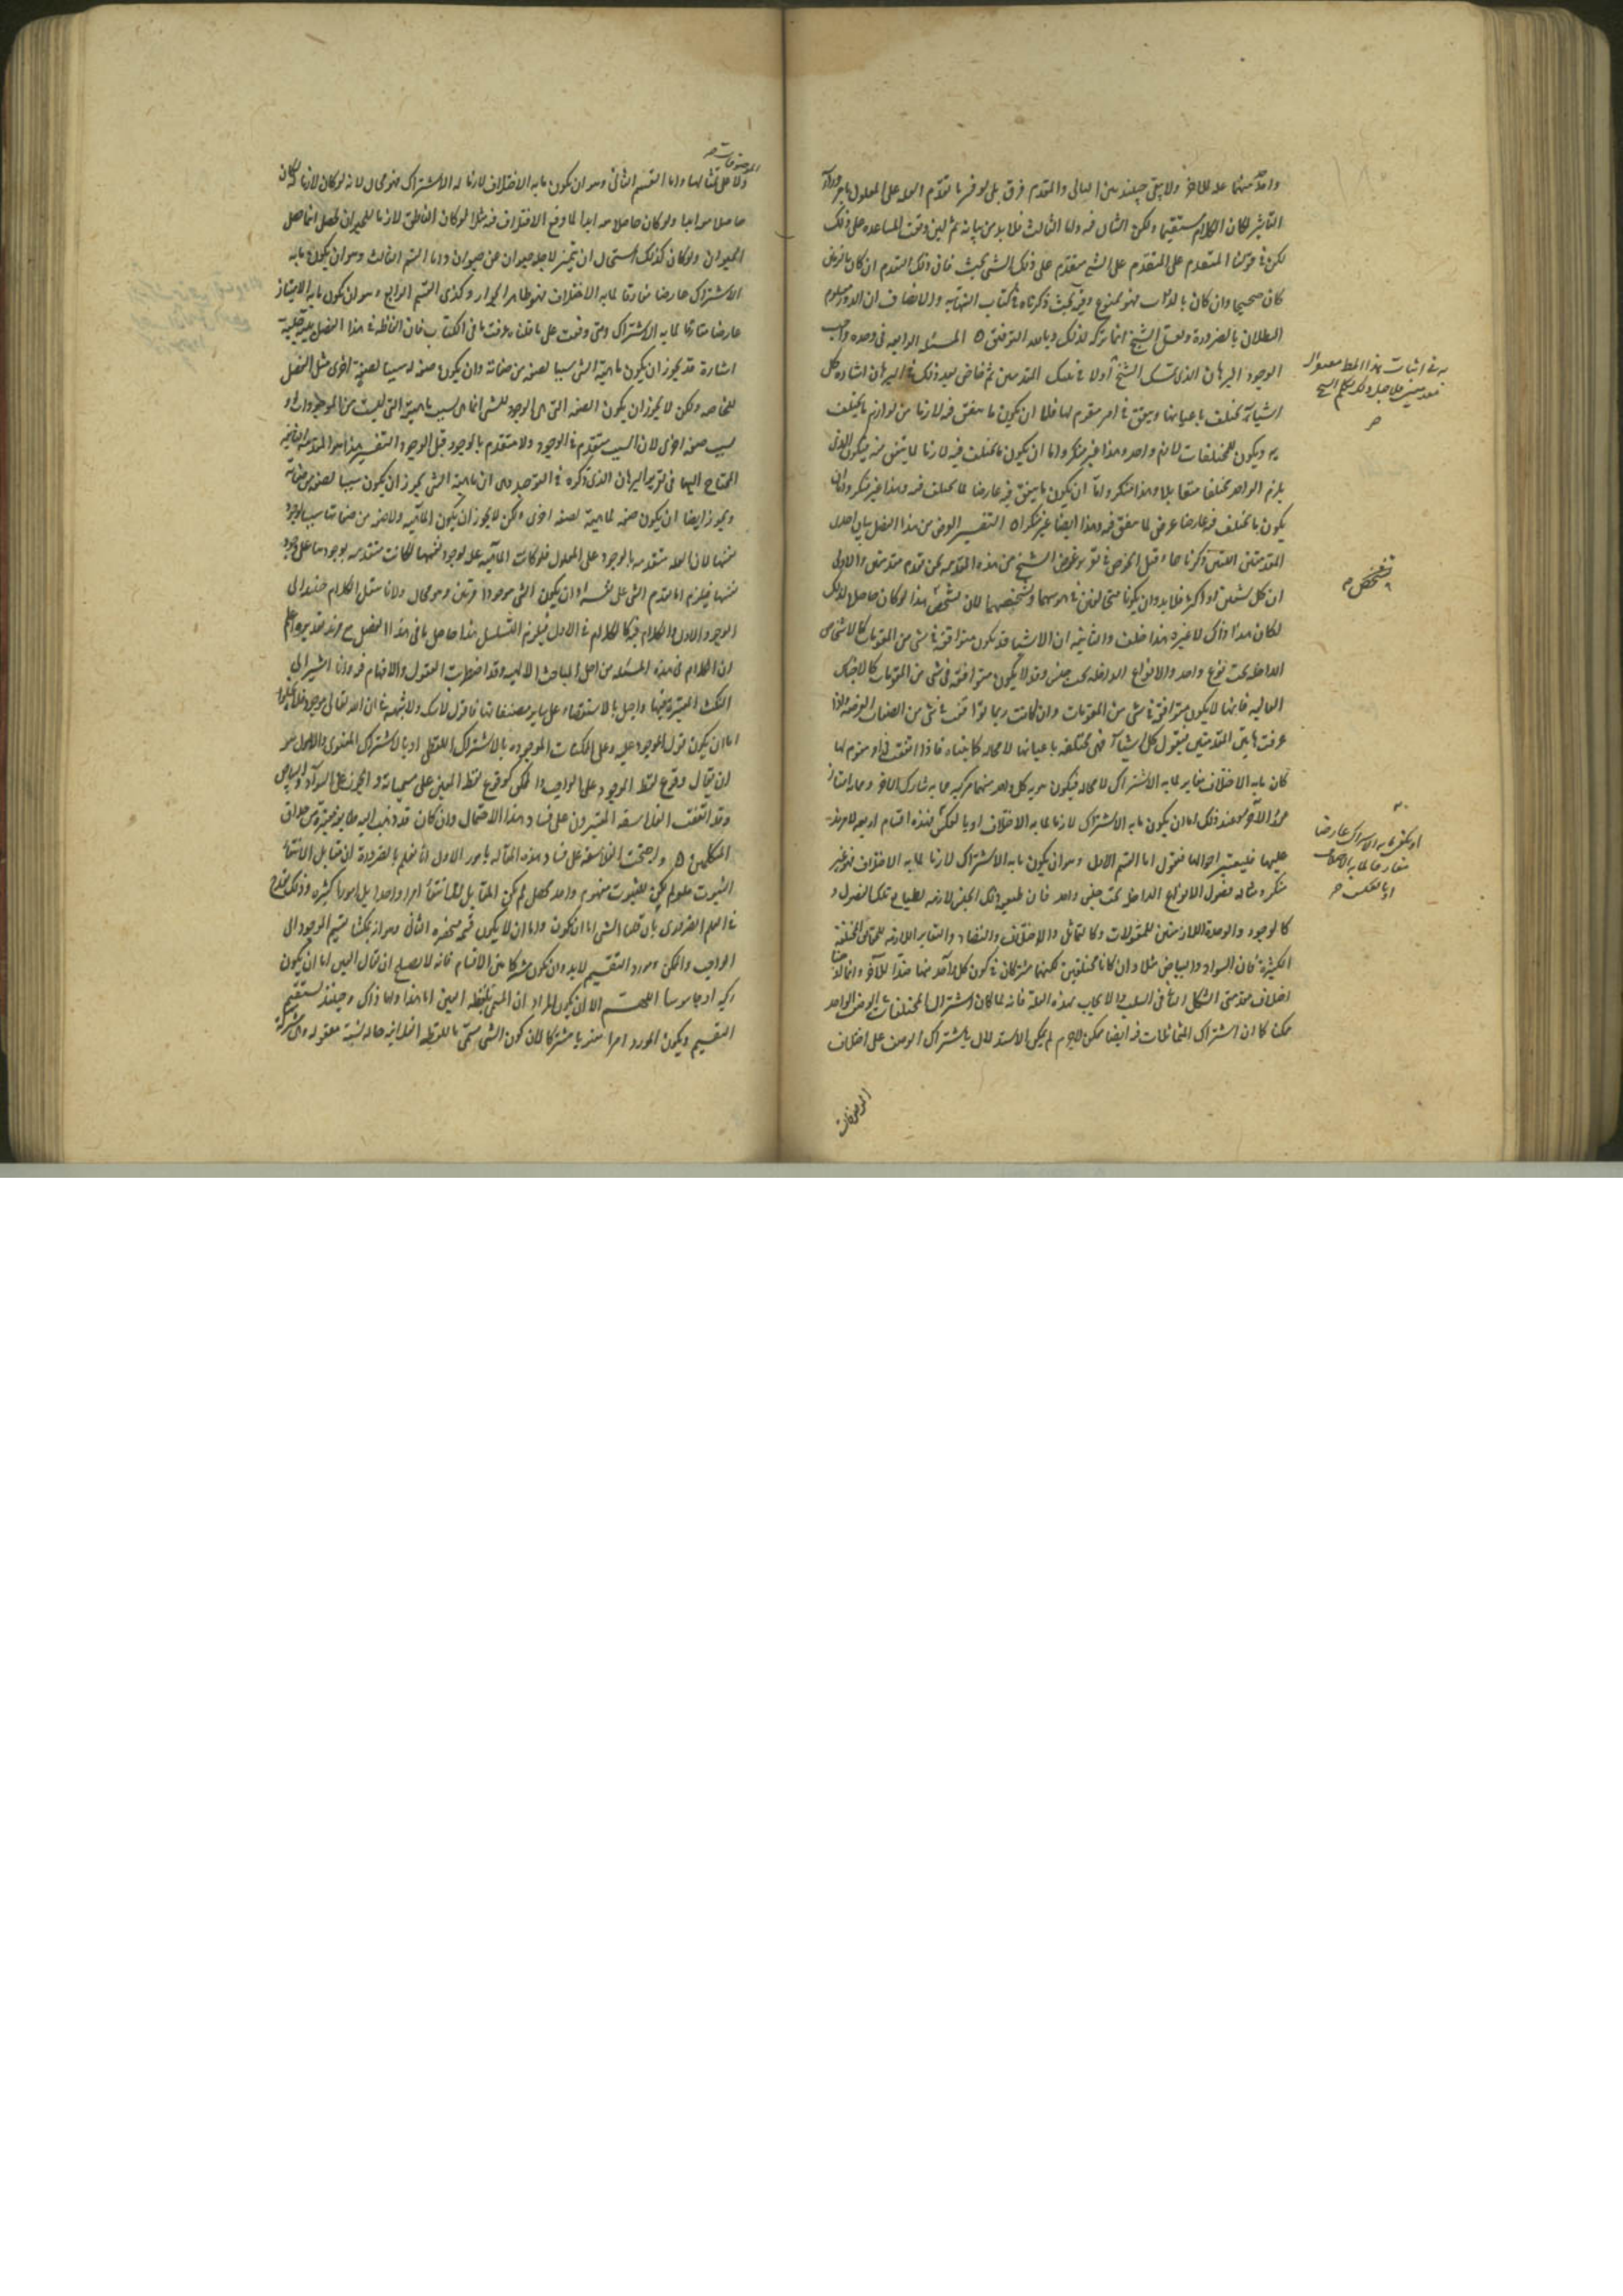 واحد منهما علة للآخر ولا يبقى حينئذ بين التالي والمقدم فرق بل لو فسرنا تقدم العلة على المعلول بامر وراء
التأثير لكان الكلام مستقيما ولكن الشأن فيه واما الثالث فلا بد من بيانه ثم لئن وقعت المساعدة على ذلك
لكن في قولنا المتقدم على المتقدم على الشيء متقدم على ذلك الشيء بحث فان ذلك التقدم ان كان بالزمان
كان صحيحا وان كان بالذات فهو ممنوع وفيه بحث ذكرناه في كتاب النهاية والانصاف ان الدور معلوم
البطلان بالضرورة ولعل الشيخ انما تركه لذلك وبالله التوفيق ه المسئلة الرابعة في وحدة واجب
الوجود البرهان الذي تمسك الشيخ أولا في تينك المقدمتين ثم خاض بعد ذلك في البرهان اشارة كل
اشياء تختلف باعيانها وتتفق في امر مقوم لها فاما ان يكون ما تتفق فيه لازما من لوازم ما تختلف
به ويكون للمختلفات لازم واحد وهذا غير منكر واما ان يكون ما تختلف فيه لازما لما تتفق فيه فيكون الذي
يلزم الواحد مختلفا متقابلا وهذا منكر واما ان يكون ما يتفق فيه عارضا لما تختلف فيه وهذا غير منكر واما ان
يكون ما تختلف فيه عارضا عرض لما تتفق فيه وهذا ايضا غير منكر ه التفسير الغرض من هذا الفصل بيان احدى
المقدمتين اللتين ذكرناهما وقبل الخوض في تقرير غرض الشيخ من هذه المقدمة نحن نقدم مقدمتين والاولى
ان كل شيئين
لكان هذا ذاك لا غيره هذا خلف والثانية ان الاشياء قد يكون متوافقة في شيء من المقومات كالاشخاص
الداخلة تحت نوع واحد والانواع الداخلة تحت جنس وقد لا يكون متوافقة في شيء من المقومات كالاجناس
العالية فانها لا يكون متوافقة في شيء من المقومات وان كانت ربما توافقت في شيء من الصفات العرضية اذا
عرفت هاتين المقدمتين فنقول كل اشياء فهي مختلفة باعيانها لا محالة كما بيناه فاذا اتفقت في امر مقوم لها
كان ما به الاختلاف مغايرا لما به الاشتراك لا محالة فيكون هوية كل واحد منهما مركبة مما به شارك الآخر ومما به امتاز
عن الآخر فعند ذلك اما ان يكون ما به الاشتراك لازما لما به الاختلاف او بالعكس فهذه اقسام اربعة لا مزيد
عليها فليعتبر احوالها فنقول اما القسم الاول وهو ان يكون ما به الاشتراك لازما لما به الاختلاف فهو غير
منكر ومثاله فصول الانواع الداخلة تحت جنس واحد فان طبيعة ذلك الجنس لازمة لطبائع تلك الفصول و
كالوجود والوحدة اللازمتين للمقولات وكالتماثل والاختلاف والتضاد والتغاير اللازمة للحقائق المختلفة
الكثيرة فان السواد والبياض مثلا وان كانا مختلفين لكنهما مشتركان في كون كل واحد منهما ضدا للآخر
اختلاف مقدمتي الشكل الثاني في السلب والايجاب بهذه العلة فانه لما كان اشتراك المختلفات في الوصف الواحد
ممكنا كما ان اشتراك المتماثلات فيه ايضا ممكن لاجرم لم يكن الاستدلال باشتراك الوصف على اختلاف
الموصوفات
او يكون ما به الاشتراك عارضا
مفارقا لما به الاختلاف
او بالعكس
الموصوفات
ولا على تماثلها واما القسم الثاني وهو ان يكون ما به الاختلاف لازما لما به الاشتراك فهو محال لانه لو كان لازما لكان
حاصلا معه ابدا ولو كان حاصلا معه ابدا لما وقع الاختلاف فيه مثلا لو كان الناطق لازما للحيوان لحصل اينما حصل
الحيوان ولو كان كذلك استحال ان يتميز لاجله حيوان عن حيوان واما القسم الثالث وهو ان يكون ما به
الاشتراك عارضا مفارقا لما به الاختلاف فهو ظاهر الجواز وكذى القسم الرابع وهو ان يكون ما به الامتياز
عارضا مفارقا لما به الاشتراك ومتى وقفت على ما قلناه عرفت ما في الكتاب فان الفاظه في هذا الفصل بينة جلية
اشارة قد يجوز ان يكون ماهية الشيء سببا لصفة من صفاته وان يكون صفة له سببا لصفة اخرى مثل الفصل
للخاصة ولكن لا يجوز ان يكون الصفة التي هي الوجود للشيء انما هي بسبب ماهيته التي ليست من الموجودات او
بسبب صفة اخرى لان السبب متقدم في الوجود ولا متقدم بالوجود قبل الوجود التفسير هذا هو المقدمة الثانية
المحتاج اليها في تقرير البرهان الذي ذكره في التوحيد وهي ان ماهية الشيء يجوز ان يكون سببا لصفة من صفاته
ويجوز ايضا ان يكون صفة لماهيته لصفة اخرى ولكن لا يجوز ان يكون الماهية ولا صفة من صفاتها سببا لوجود
نفسها لان العلة متقدمة بالوجود على المعلول فلو كانت الماهية علة لوجود نفسها لكانت متقدمة بوجودها على وجود
نفسها فيلزم اما تقدم الشيء على نفسه او ان يكون الشيء موجودا مرتين وهو محال ولانا ننقل الكلام حينئذ الى
الوجود الاول والكلام فيه كالكلام في الاول فيلزم التسلسل هذا حاصل ما في هذا الفصل مع مزيد تقرير واعلم
ان الكلام في هذه المسئلة من اجل المباحث الالهية وقد اضطربت العقول والافهام فيه وانا اشير الى
النكت المعتبرة فيها واحيل بالاستقصاء على سائر مصنفاتنا فاقول لا شك ولا شبهة في ان الله تعالى موجود فلا يخلوا
اما ان يكون قول الموجود عليه وعلى الممكنات الموجودة بالاشتراك اللفظي او بالاشتراك المعنوي والاول هو
ان يقال وقوع لفظ الوجود على الواجب والممكن كوقوع لفظ العين على مسمياته والجون على السواد والبياض
وقد اتفقت الفلاسفة المعتبرون على فساد هذا الاحتمال وان كان قد ذهب اليه طايفة عظيمة من حذاق
المتكلمين ه واحتجت الفلاسفة على فساد هذه المقالة بامور الاول انا نعلم بالضرورة ان مقابل الانتفاء
الثبوت فلو لم يكن للثبوت مفهوم واحد محصل لم يكن المقابل للانتفاء امرا واحدا بل امورا كثيرة وذلك يقدح
في العلم الضروري بان قولنا الشيء اما ان يكون واما ان لا يكون قسمة منحصرة الثاني وهو انه يمكننا تقسيم الوجود الى
الواجب والممكن ومورد التقسيم لا بد وان يكون مشتركا بين الاقسام فانه لا يصلح ان يقال العين اما ان يكون
ركبة او جاسوسا اللهم الا ان يكون المراد ان المسمى بلفظ العين اما هذا واما ذاك وحينئذ يستقيم
التقسيم ويكون المورد امرا معنويا مشتركا لان كون الشيء مسمى باللفظة الفلانية حالة نسبية معقولة